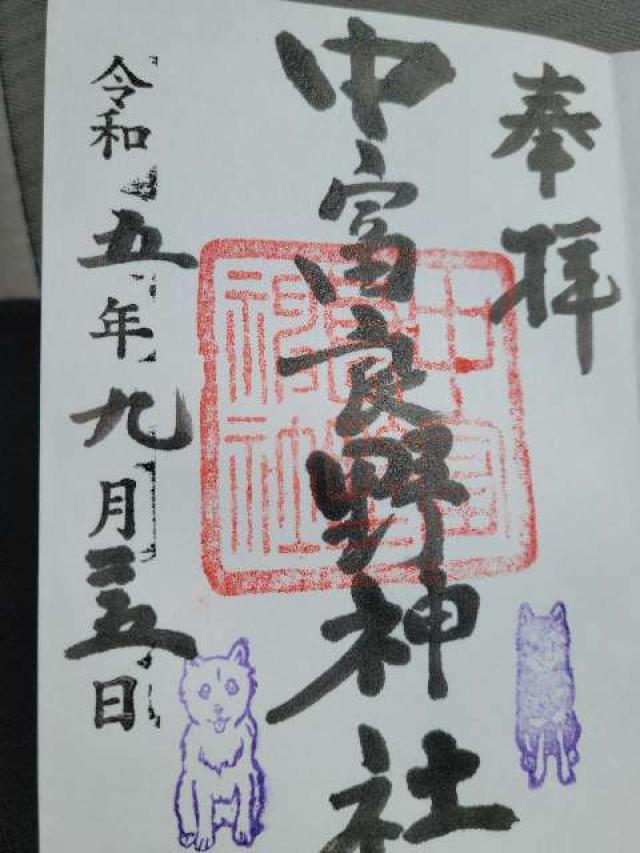 奉拝
中富良野神社
令和五年九月二五日
中富
神社